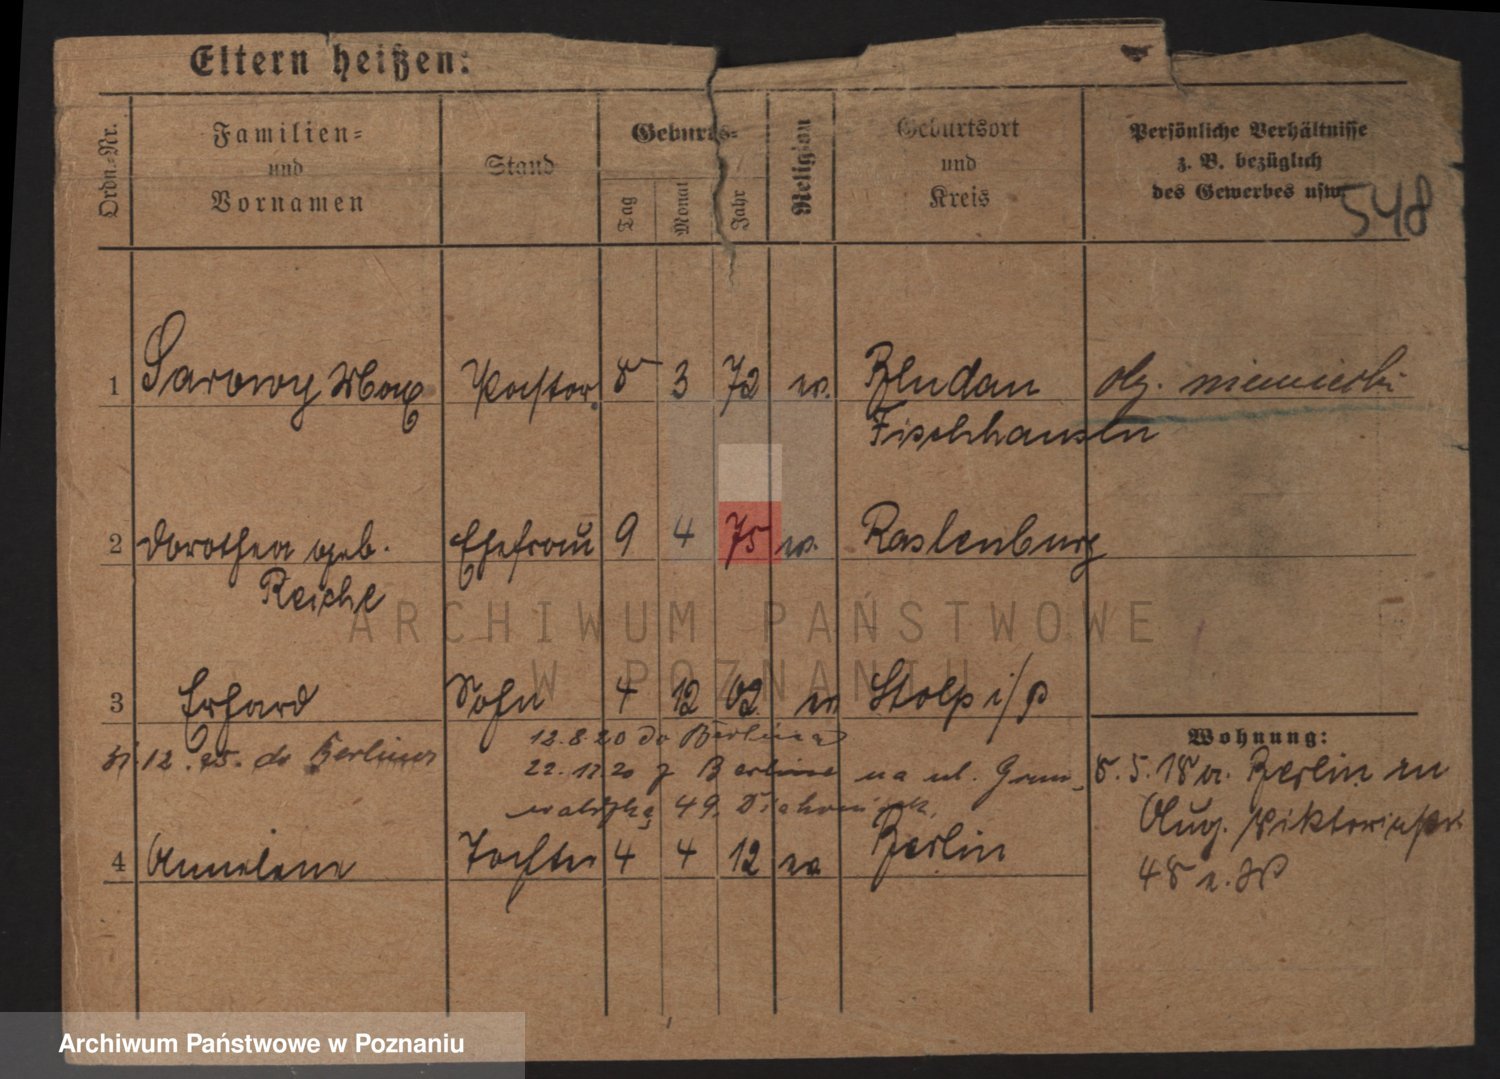 Eltern heißen:
Ordn.-Nr.
Familien-
und
Vornamen
Stand
Geburts-
Tag
Monat
Jahr
Religion
Geburtsort
und
Kreis
Persönliche Verhältnisse
z. B. bezüglich
des Gewerbes usw.
548
1 Sarowy Max Pastor. 8 3 72 ev. Bludau ob. niemiecki
Fischhausen
2 Dorothea geb. Ehefrau 9 4 75 ev. Rastenburg
Reiche
3 Erhard Sohn 4 12 02 ev Stolp i/P
12.8.20 do Berlina
31 12. 25. do Berlina
Wohnung:
22.12 20 z Berlina na ul. Grun-
waldzką 49. Diakonis
8.5.18 a. Berlin
Aug. Viktoriastr.
48
4 Annelene Tochter 4 4 12 ev Berlin
ARCHIWUM PAŃSTWOWE
W POZNANIU
Archiwum Państwowe w Poznaniu